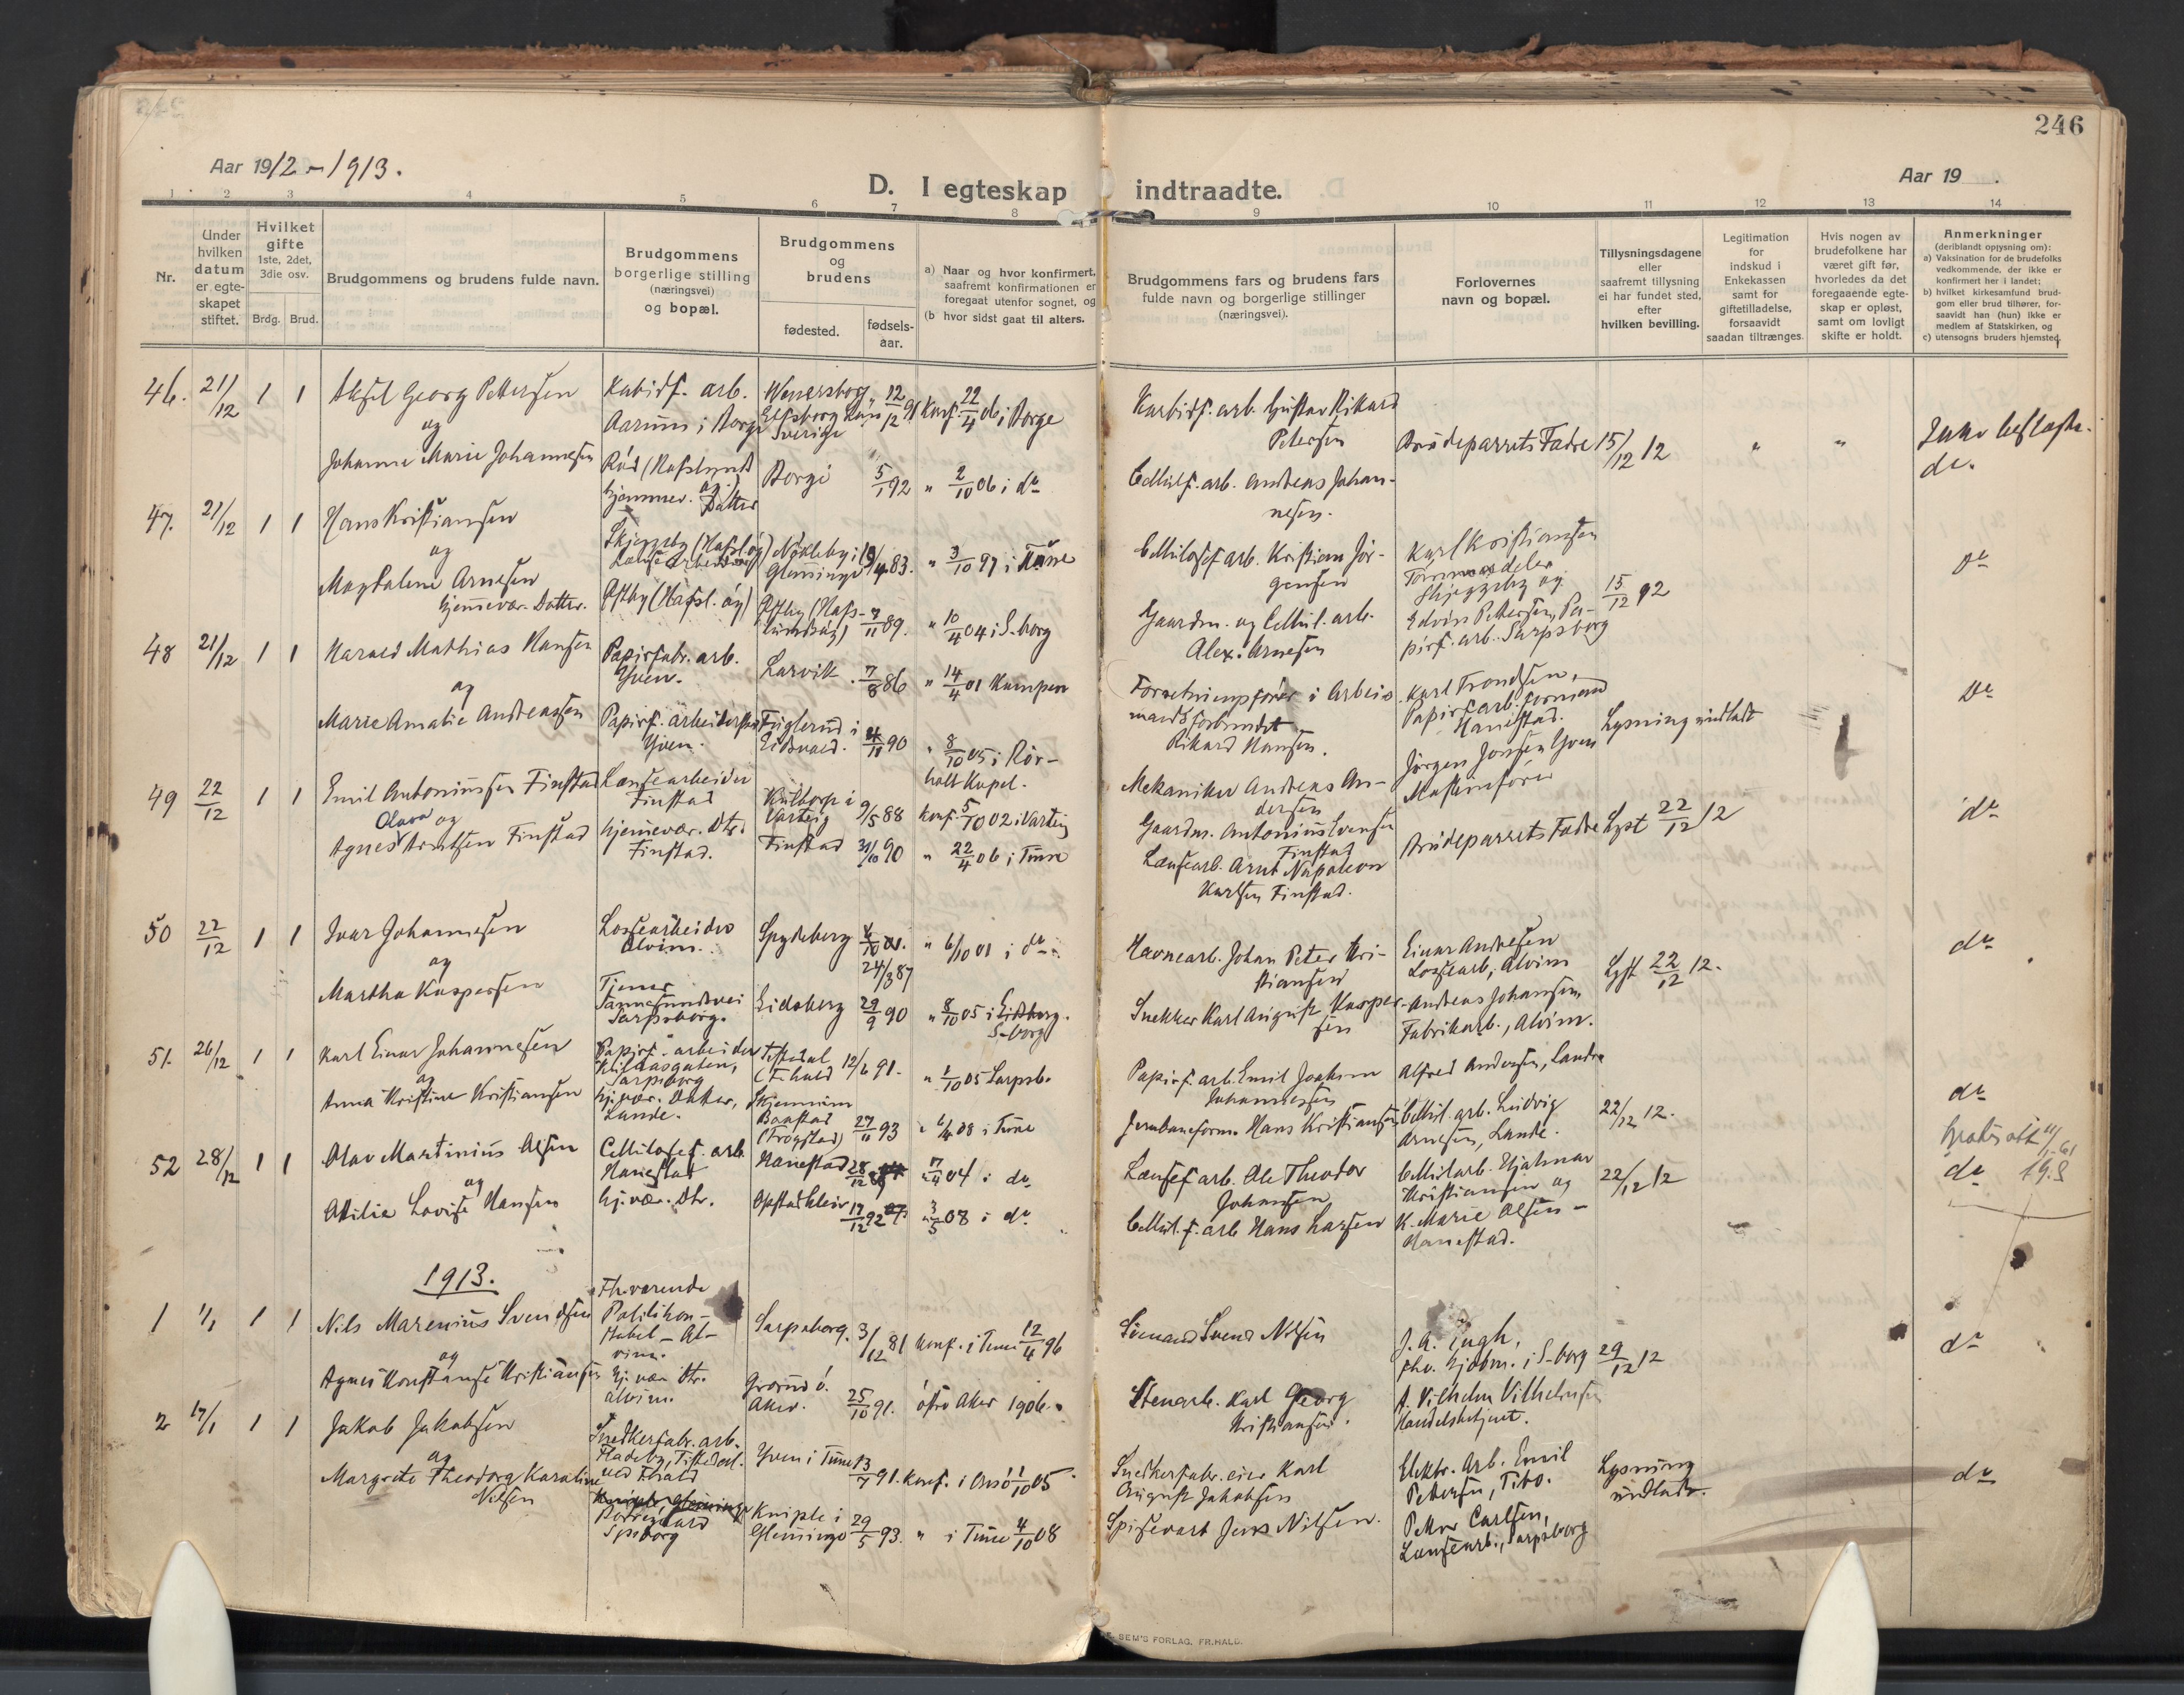 246
Aar 1912 - 1913.
D. I egteskap indtraadte.
Aar 19 .
1 2 3 4 5 6 7 8 9 10 11 12 13 14
Nr.
Under hvilken datum er egteskapet stiftet.
Hvilket gifte 1ste, 2det, 3die osv.
Brdg. Brud.
Brudgommens og brudens fulde navn.
Brudgommens borgerlige stilling (næringsvei) og bopæl.
Brudgommens og brudens
fødested.
fødselsaar.
a) Naar og hvor konfirmert, saafremt konfirmationen er foregaat utenfor sognet, og
(b hvor sidst gaat til alters.
Brudgommens fars og brudens fars fulde navn og borgerlige stillinger (næringsvei).
Forlovernes navn og bopæl.
Tillysningsdagene eller saafremt tillysning ei har fundet sted, efter hvilken bevilling.
Legitimation for indskud i Enkekassen samt for giftetilladelse, forsaavidt saadan tiltrænges.
Hvis nogen av brudefolkene har været gift før, hvorledes da det foregaaende egteskap er opløst, samt om lovligt skifte er holdt.
Anmerkninger (deriblandt oplysning om):
a) Vaksination for de brudefolks vedkommende, der ikke er konfirmert her i landet;
b) hvilket kirkesamfund brudgom eller brud tilhører, forsaavidt han (hun) ikke er medlem af Statskirken, og
c) utensogns bruders hjemsted.
46. 21/12 1 1 Aksel Georg Pettersen
og
Johanne Marie Johannesen
Karbidf. arb.
Aarum i Borge
Rød (Hafslund
hjemmev. Datter
Wenersborg
Elfsborg Län
Sverige
12/12 91 Konf. 22/4 06 i Borge
Borge 5/1 92 " 2/10 06 i do
Karbidf. arb. Gustav Rikard
Petersen
Cellulf. arb. Andreas Johannesen.
Brudeparrets Fædre 15/12 12 " "
Ikke beslægt.
do
47. 21/12 1 1 Hans Kristiansen
og
Magdalene Arnesen
hjemmevær. Datter.
Skjeggeby (Hafsl. og)
Lænsearbeider
Østby (Hafsl. og)
Nøkleby i
Glemminge 19/4 83. " 3/10 97 i Tune
Østby (Hafslund og) 7/11 89. " 10/4 04 i S-borg
Cellulosef. arb. Kristian Jørgensen
Gaardm. og Cellul. arb.
Alex. Arnesen
Karl Kristiansen
Skjeggeby og
Edvin Pettersen, Papirf. arb. Sarpsborg
15/12 12
do
48 21/12 1 1 Harald Mathias Hansen
og
Marie Amalie Andreassen
Papirfabr. arb.
Yven.
Papirf. arbeiderske
Yven.
Larvik . 7/8 86 " 14/4 01 Kampen
Fuglerud i
Eidsvold. 4/11 90 " 8/10 05 i Rørholt Kapel.
Forretningsfører i Arbeidsmandsforbundet
Rikard Hansen.
Mekaniker Andreas Andersen
Karl Trondsen,
Papirf. arb. formand
Hanestad.
Jørgen Jonsen Yven
Maskinfører
Lysning undladt
do
49 22/12 1 1 Emil Antoniussen Finstad
og
Agnes Olava Arntsen Finstad
Lænsearbeider
Finstad
hjemmevær. Dtr.
Finstad.
Kultorp i
Varteig 9/5 88 Konf. 5/10 02 i Varteig
Finstad 31/10 90 " 22/4 06 i Tune
Gaardm. Antonius Svensen
Finstad
Lænsearb. Arnt Napoleon
Karlsen Finstad.
Brudeparrets Fædre Lyst 22/12 12
do
50 22/12 1 1 Ivar Johannesen
og
Martha Kaspersen
Lossearbeider
Alvim.
Tjener
Tarnesundsvei
Sarpsborg.
Spydeberg
24/3 87
" 6/10 01 i do
Eidsberg 29/9 90 " 8/10 05 i Eidsberg.
S-borg
Havnearb. Johan Peter Kristiansen
Snekker Karl August Kaspersen
Einar Andresen
Lossearb, Alvim
Andreas Johansen,
Fabrikarb., Alvim.
Lyst 22/12 12.
do
51. 26/12 1 1 Karl Einar Johannesen
og
Anna Kristine Kristiansen
Papirf. arbeider
Sarpsborg
hj. vær. Datter,
Lande.
Tistedal
(F.hald 12/6 91. " 1/10 05 Sarpsb.
Baastad
(Trøgstad) 27/11 93 " 6/4 08 i Tune
Papirf. arb. Emil Joakim
Johannesen
Jernbaneform. Hans Kristiansen
Alfred Andersen, Lande
Cellul. arb. Ludvig
Arnesen, Lande.
22/12 12.
do
52 28/12 1 1 Olav Martinius Olsen
og
Otilie Lovise Hansen
Cellulosef. arb.
Hanestad
hj. vær. Dtr.
Hanestad 28/12 7/4 04 i do
Opstad 17/12 92 3/5 08 i do
Lænsef. arb. Ole Theodor
Johansen
Cellul. f. arb Hans Larsen
Cellul arb. Hjalmar
Kristiansen og
K. Marie Olsen -
Hanestad.
22/12 12
do
1913.
1 1/1 1 1 Nils Marenius Svendsen
og
Agnes Konstanse Kristiansen
Fhv.erende
Politikonstabel - Alvim.
Hj. vær Dtr.
Alvim.
Sarpsborg. 3/12 81 Konf. i Tune 12/4 96
Grorud ø.
Aker. 25/10 91. østre Aker 1906.
Sømand Svend Nilsen
Stenarb. Karl Georg
Kristiansen.
J. A. Engh,
fhv. Kjøbm. i S-borg
A. Vilhelm Vilhelmsen
Handelsbetjent.
29/12 12
do
2 17/1 1 1 Jakob Jakobsen
og
Margrete Theodora Karoline
Nilsen
Snedkerfabr. arb.
Fladeby, Tistedal.
ved F.hald
Borregaard
Spsborg
Yven i Tune 13/7 91. Konf. i Onsø 1/10 05
Kniple i
Glemminge 29/5 93. " i Tune 4/10 08
Snedkerfabr. eier Karl
August Jakobsen
Spisevært Jens Nilsen.
Elektr. Arb. Emil
Pettersen, Tibo.
Petter Carlsen,
Lænsearb., Sarpsborg
Lysning
undladt.
do
SEM'S FORLAG, FR.HALD.